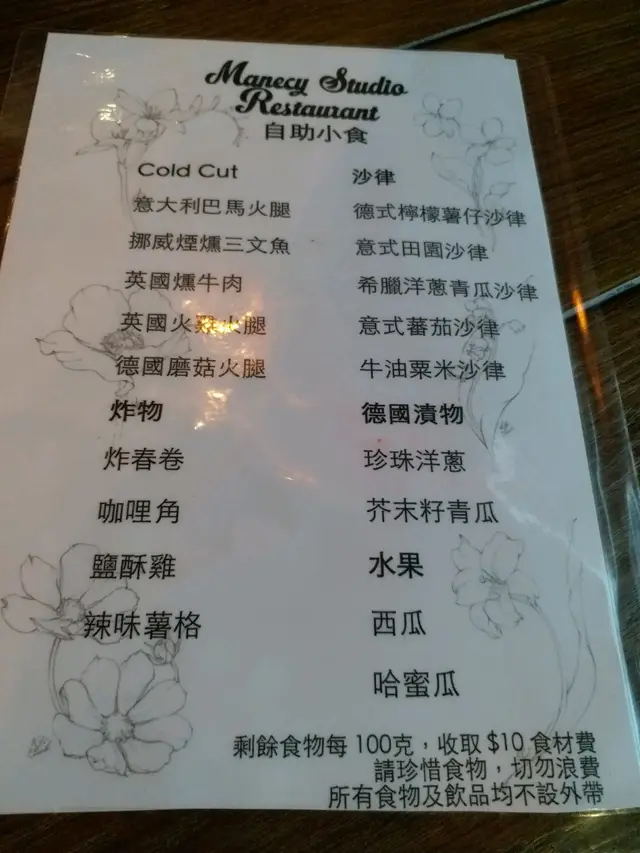 Manecy Studio
Restaurant
自助小食
Cold Cut
意大利巴馬火腿
挪威煙燻三文魚
英國燻牛肉
英國火雞火腿
德國磨菇火腿
炸物
炸春卷
咖哩角
鹽酥雞
辣味薯格
沙律
德式檸檬薯仔沙律
意式田園沙律
希臘洋蔥青瓜沙律
意式蕃茄沙律
牛油粟米沙律
德國漬物
珍珠洋蔥
芥末籽青瓜
水果
西瓜
哈蜜瓜
剩餘食物每 100克，收取 $10 食材費
請珍惜食物，切勿浪費
所有食物及飲品均不設外帶